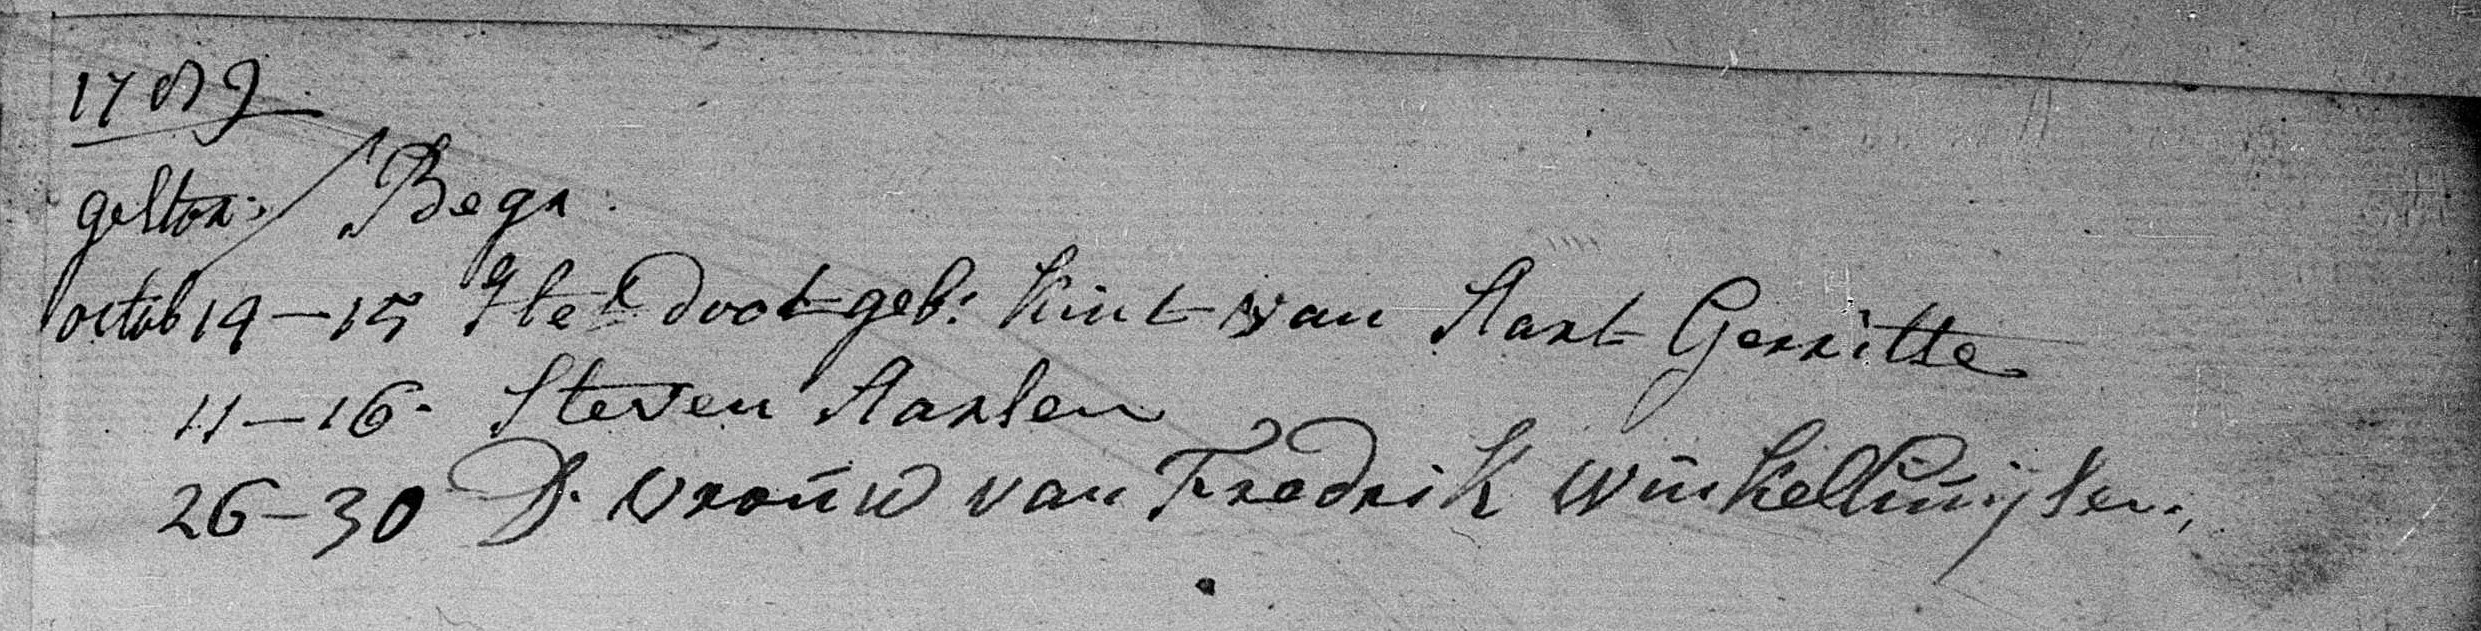 1789
gestor:/ Begr.
octob 14-15 Het dootgeb: Kint van Aart Gerritse
11-16. Steven Aarsen
26-30 D. vrouw van Fredrik